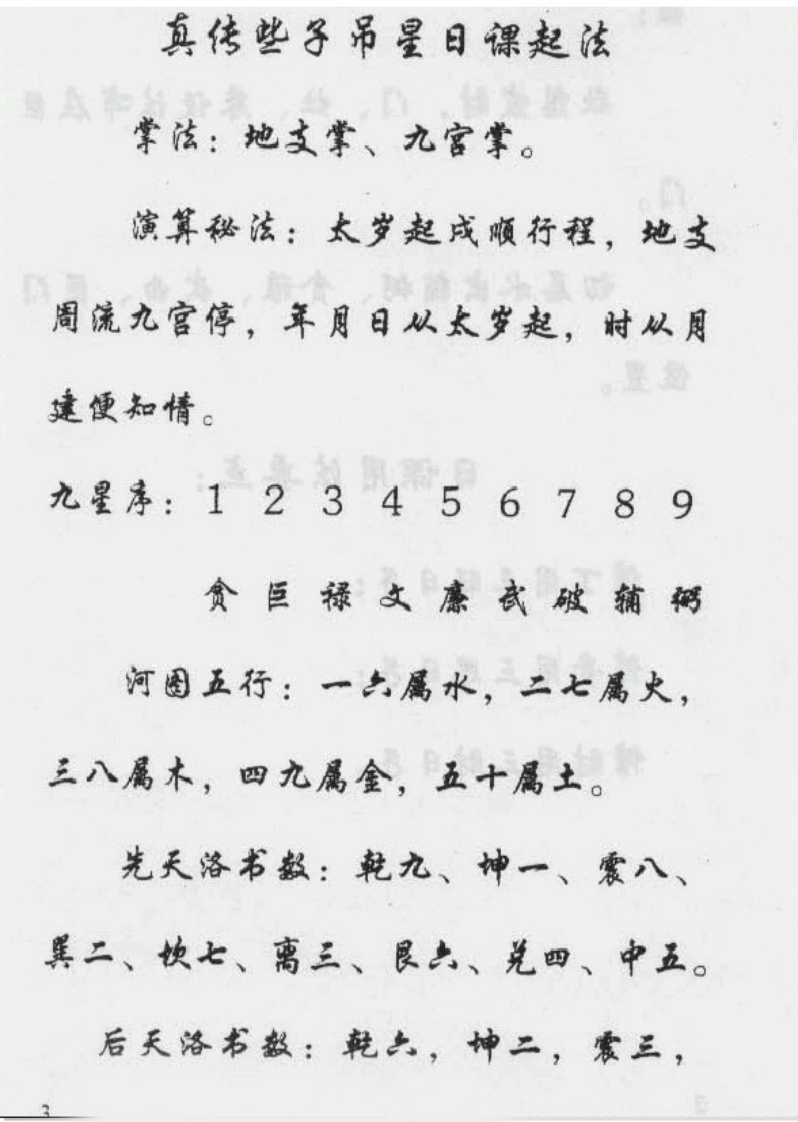 真传些子吊星日课起法
掌法：地支掌、九宫掌。
演算秘法：太岁起戍顺行程，地支
周流九宫停，年月日从太岁起，时从月
建便知情。
九星序：1 2 3 4 5 6 7 8 9
贪 巨 禄 文 廉 武 破 辅 弼
河图五行：一六属水，二七属火，
三八属木，四九属金，五十属土。
先天洛书数：乾九、坤一、震八、
巽二、坎七、离三、艮六、兑四、中五。
后天洛书数：乾六，坤二，震三，
3